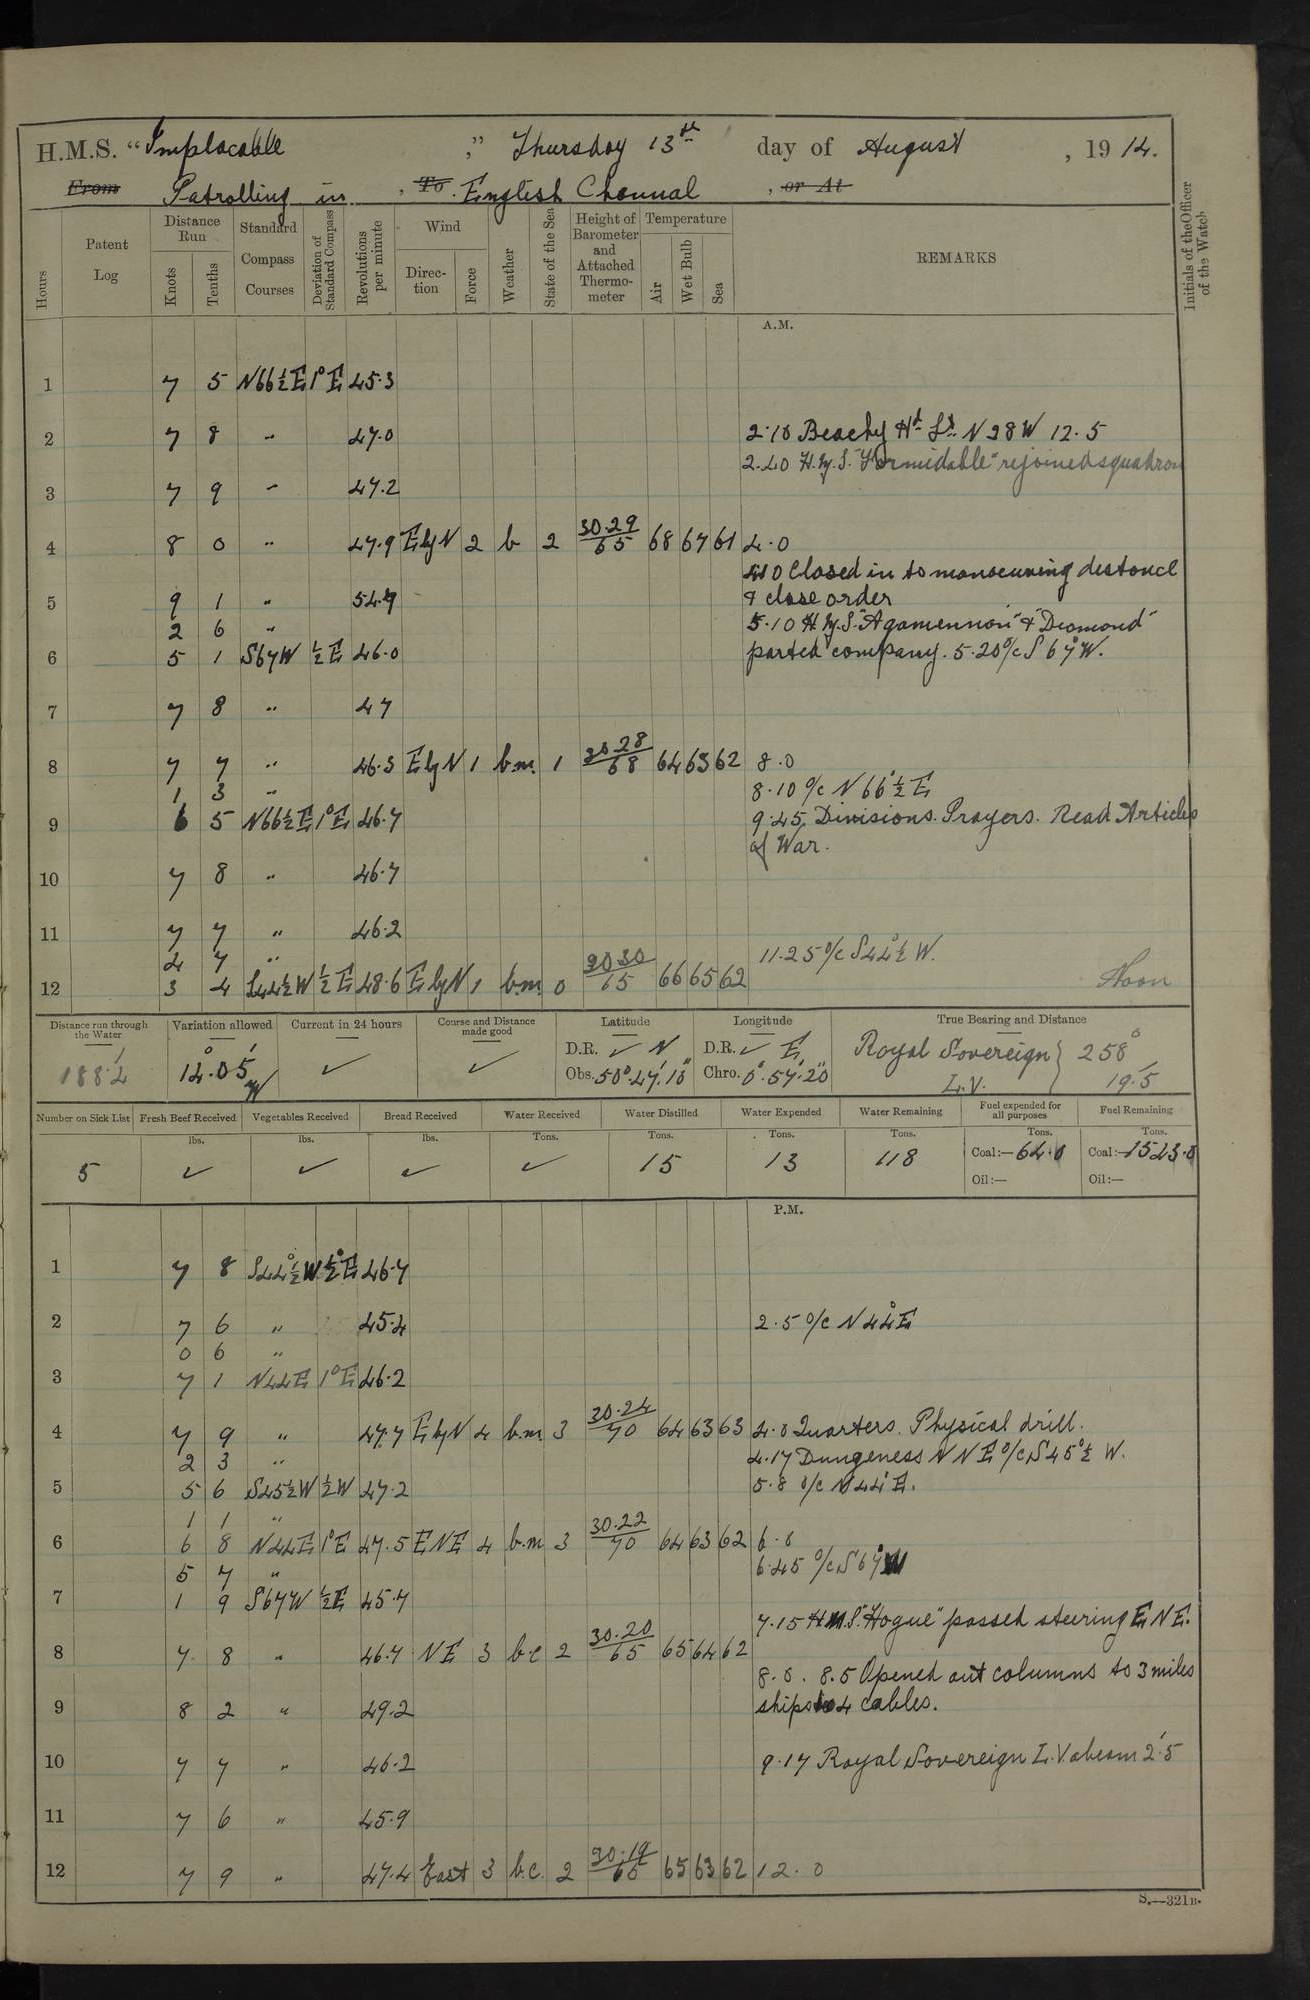 H.M.S. "Implacable," Thursday 13th day of August, 1914.
From Patrolling in, To English Channal, or At
Hours
Patent Log
Distance Run
Knots
Tenths
Standard Compass Courses
Deviation of Standard Compass
Revolutions per minute
Wind
Direction
Force
Weather
State of the Sea
Height of Barometer and Attached Thermometer
Temperature
Air
Wet Bulb
Sea
REMARKS
Initials of the Officer of the Watch
A.M.
1 7 5 N66½E 1°E 45.3
2 7 8 " 47.0 2.10 Beachy Hd Lt N 28 W 12.5
2.40 H.M.S. "Formidable" rejoined squadron
3 7 9 " 47.2
4 8 0 " 47.9 E by N 2 b 2 30.29/65 68 67 61 4.0
4.10 Closed in to manoeuvring distance
5 9 1 " 54.9 & close order
2 6 " 5.10 H.M.S. "Agamemnon" & "Diamond"
6 5 1 S67W ½E 46.0 parted company. 5.20 o/c S 67° W.
7 7 8 " 47
8 7 7 " 46.3 E by N 1 b.m. 1 30.28/68 64 63 62 8.0
1 3 " 8.10 o/c N 66°½ E
9 6 5 N66½E 1°E 46.7 9.45 Divisions. Prayers. Read Articles
of War.
10 7 8 " 46.7
11 7 7 " 46.2
4 7 " 11.25 o/c S44°½ W.
12 3 4 S44½W ½E 48.6 E by N 1 b.m. 0 30.30/65 66 65 62 Noon
Distance run through the Water
188.2
Variation allowed
12°.05' W
Current in 24 hours
✓
Course and Distance made good
✓
Latitude
D.R. ✓ N
Obs. 50°.47'.10"
Longitude
D.R. ✓ E
Chro. 0°.57'.20"
True Bearing and Distance
Royal Sovereign L.V. } 258° 19'.5
Number on Sick List
5
Fresh Beef Received
lbs.
✓
Vegetables Received
lbs.
✓
Bread Received
lbs.
✓
Water Received
Tons.
✓
Water Distilled
Tons.
15
Water Expended
Tons.
13
Water Remaining
Tons.
118
Fuel expended for all purposes
Tons.
Coal:— 64.0
Oil:—
Fuel Remaining
Tons.
Coal:— 1523.0
Oil:—
P.M.
1 7 8 S44°½W ½°E 46.7
2 7 6 " 45.4 2.5 o/c N44°E
0 6 "
3 7 1 N44E 1°E 46.2
4 7 9 " 47.7 E by N 4 b.m 3 30.24/70 64 63 63 4.0 Quarters. Physical drill.
2 3 " 4.17 Dungeness N N E o/c S45°½ W.
5 5 6 S45½W ½W 47.2 5.8 o/c N44°E.
1 1 "
6 6 8 N44E 1°E 47.5 ENE 4 b.m 3 30.22/70 64 63 62 6.0
5 7 " 6.45 o/c S67°W
7 1 9 S67W ½E 45.7
7.15 H.M.S. "Hogue" passed steering E N E.
8 7 8 " 46.7 NE 3 b.c 2 30.20/65 65 64 62
8.0. 8.5 Opened out columns to 3 miles
9 8 2 " 49.2 ships to 4 cables.
10 7 7 " 46.2 9.17 Royal Sovereign L.V abeam 2'.5
11 7 6 " 45.9
12 7 9 " 47.4 East 3 b.c. 2 30.19/65 65 63 62 12.0
S.—321B.